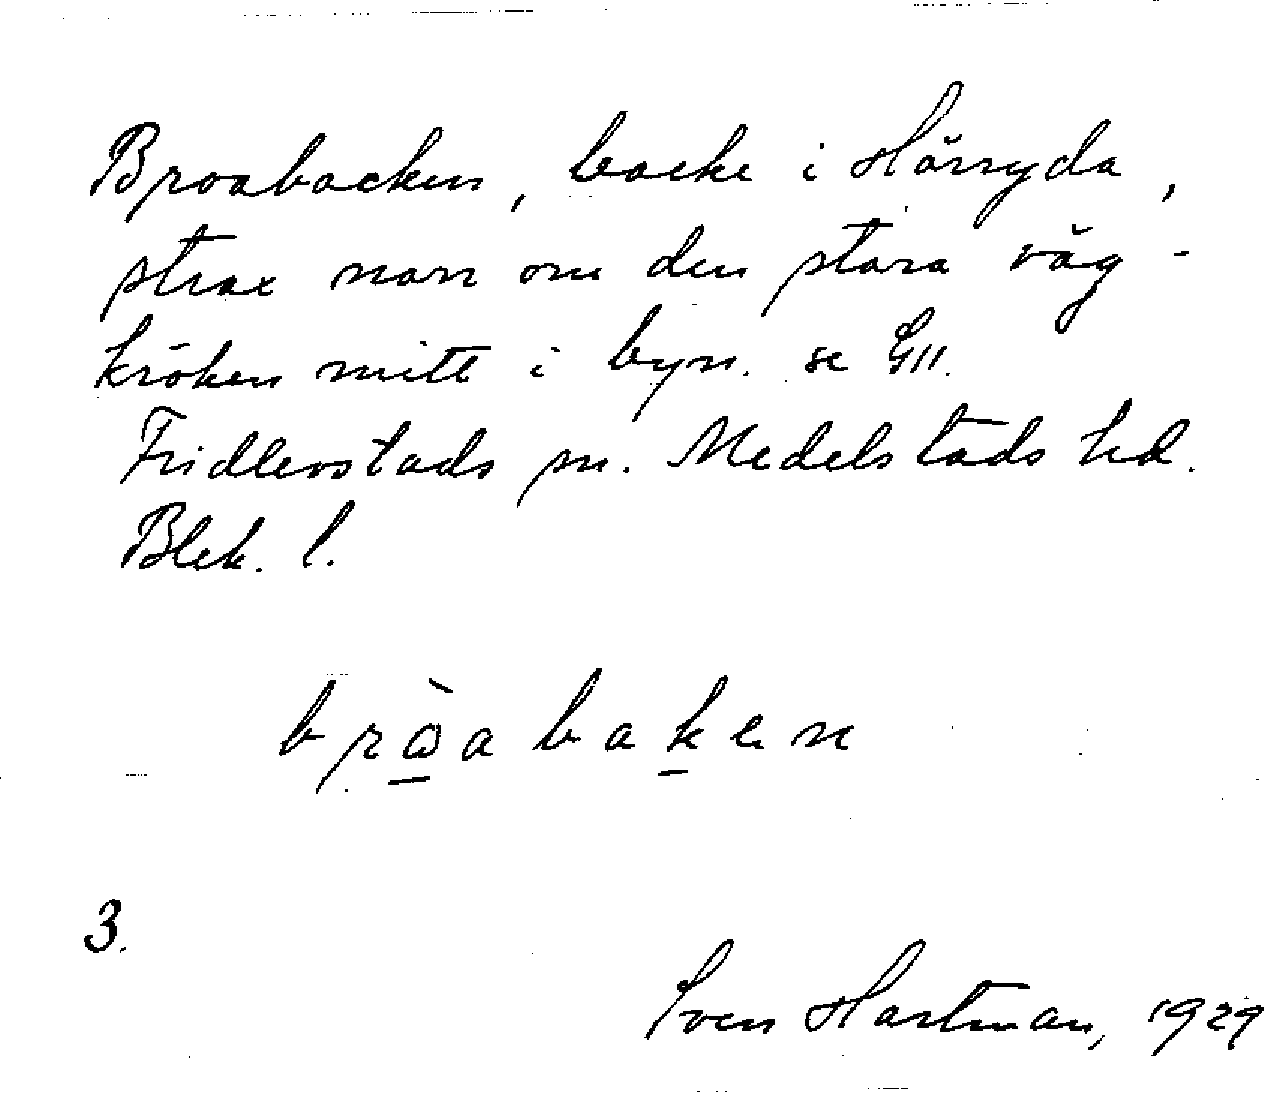 Broabacken, backe i Hårryda,
strax norr om den stora väg-
kröken mitt i byn. se GII.
Fridlevstads sn. Medelstads hd.
Blek. l.
bròabaken
3.
Sven Hartman, 1929